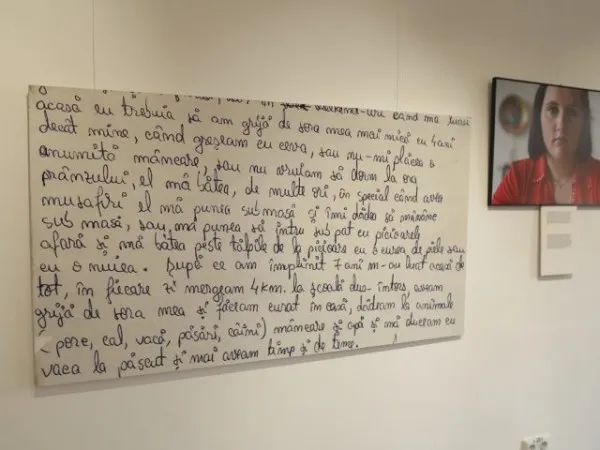 acasă eu trebuia să am grijă de sora mea mai mică cu 4 ani
decât mine, când greseam cu ceva, sau nu-mi plăcea o
anumită mâncare, sau nu vroiam să dorm la ora
prânzului, el mă bătea, de multe ori, în special când avea
musafiri el mă punea sub masă și îmi dădea să mănânc
sub masă, sau, mă punea să intru sub pat cu picioarele
afară și mă bătea peste tălpile de la picioare cu o curea de piele sau
cu o nuiea. După ce am împlinit 7 ani m-au luat acasă de
tot, în fiecare zi mergeam 4km. la școală dus-întors, aveam
grijă de sora mea și făceam curat în casă, dădeam la animale
(porc, cal, vacă, păsări, câini) mâncare și apă și mă duceam cu
vaca la păscut și mai aveam timp și de teme.